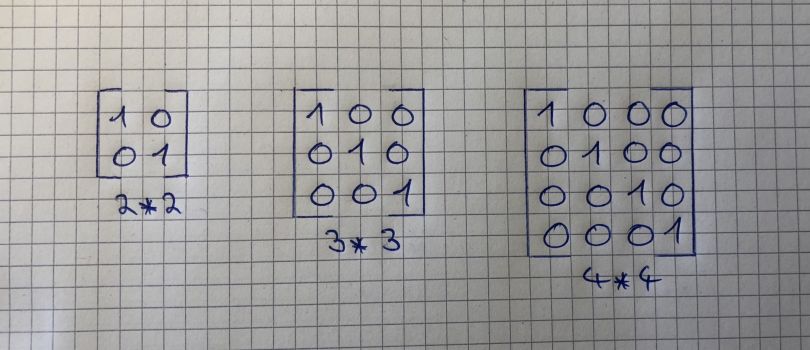 1 0
0 1
2*2
1 0 0
0 1 0
0 0 1
3*3
1 0 0 0
0 1 0 0
0 0 1 0
0 0 0 1
4*4